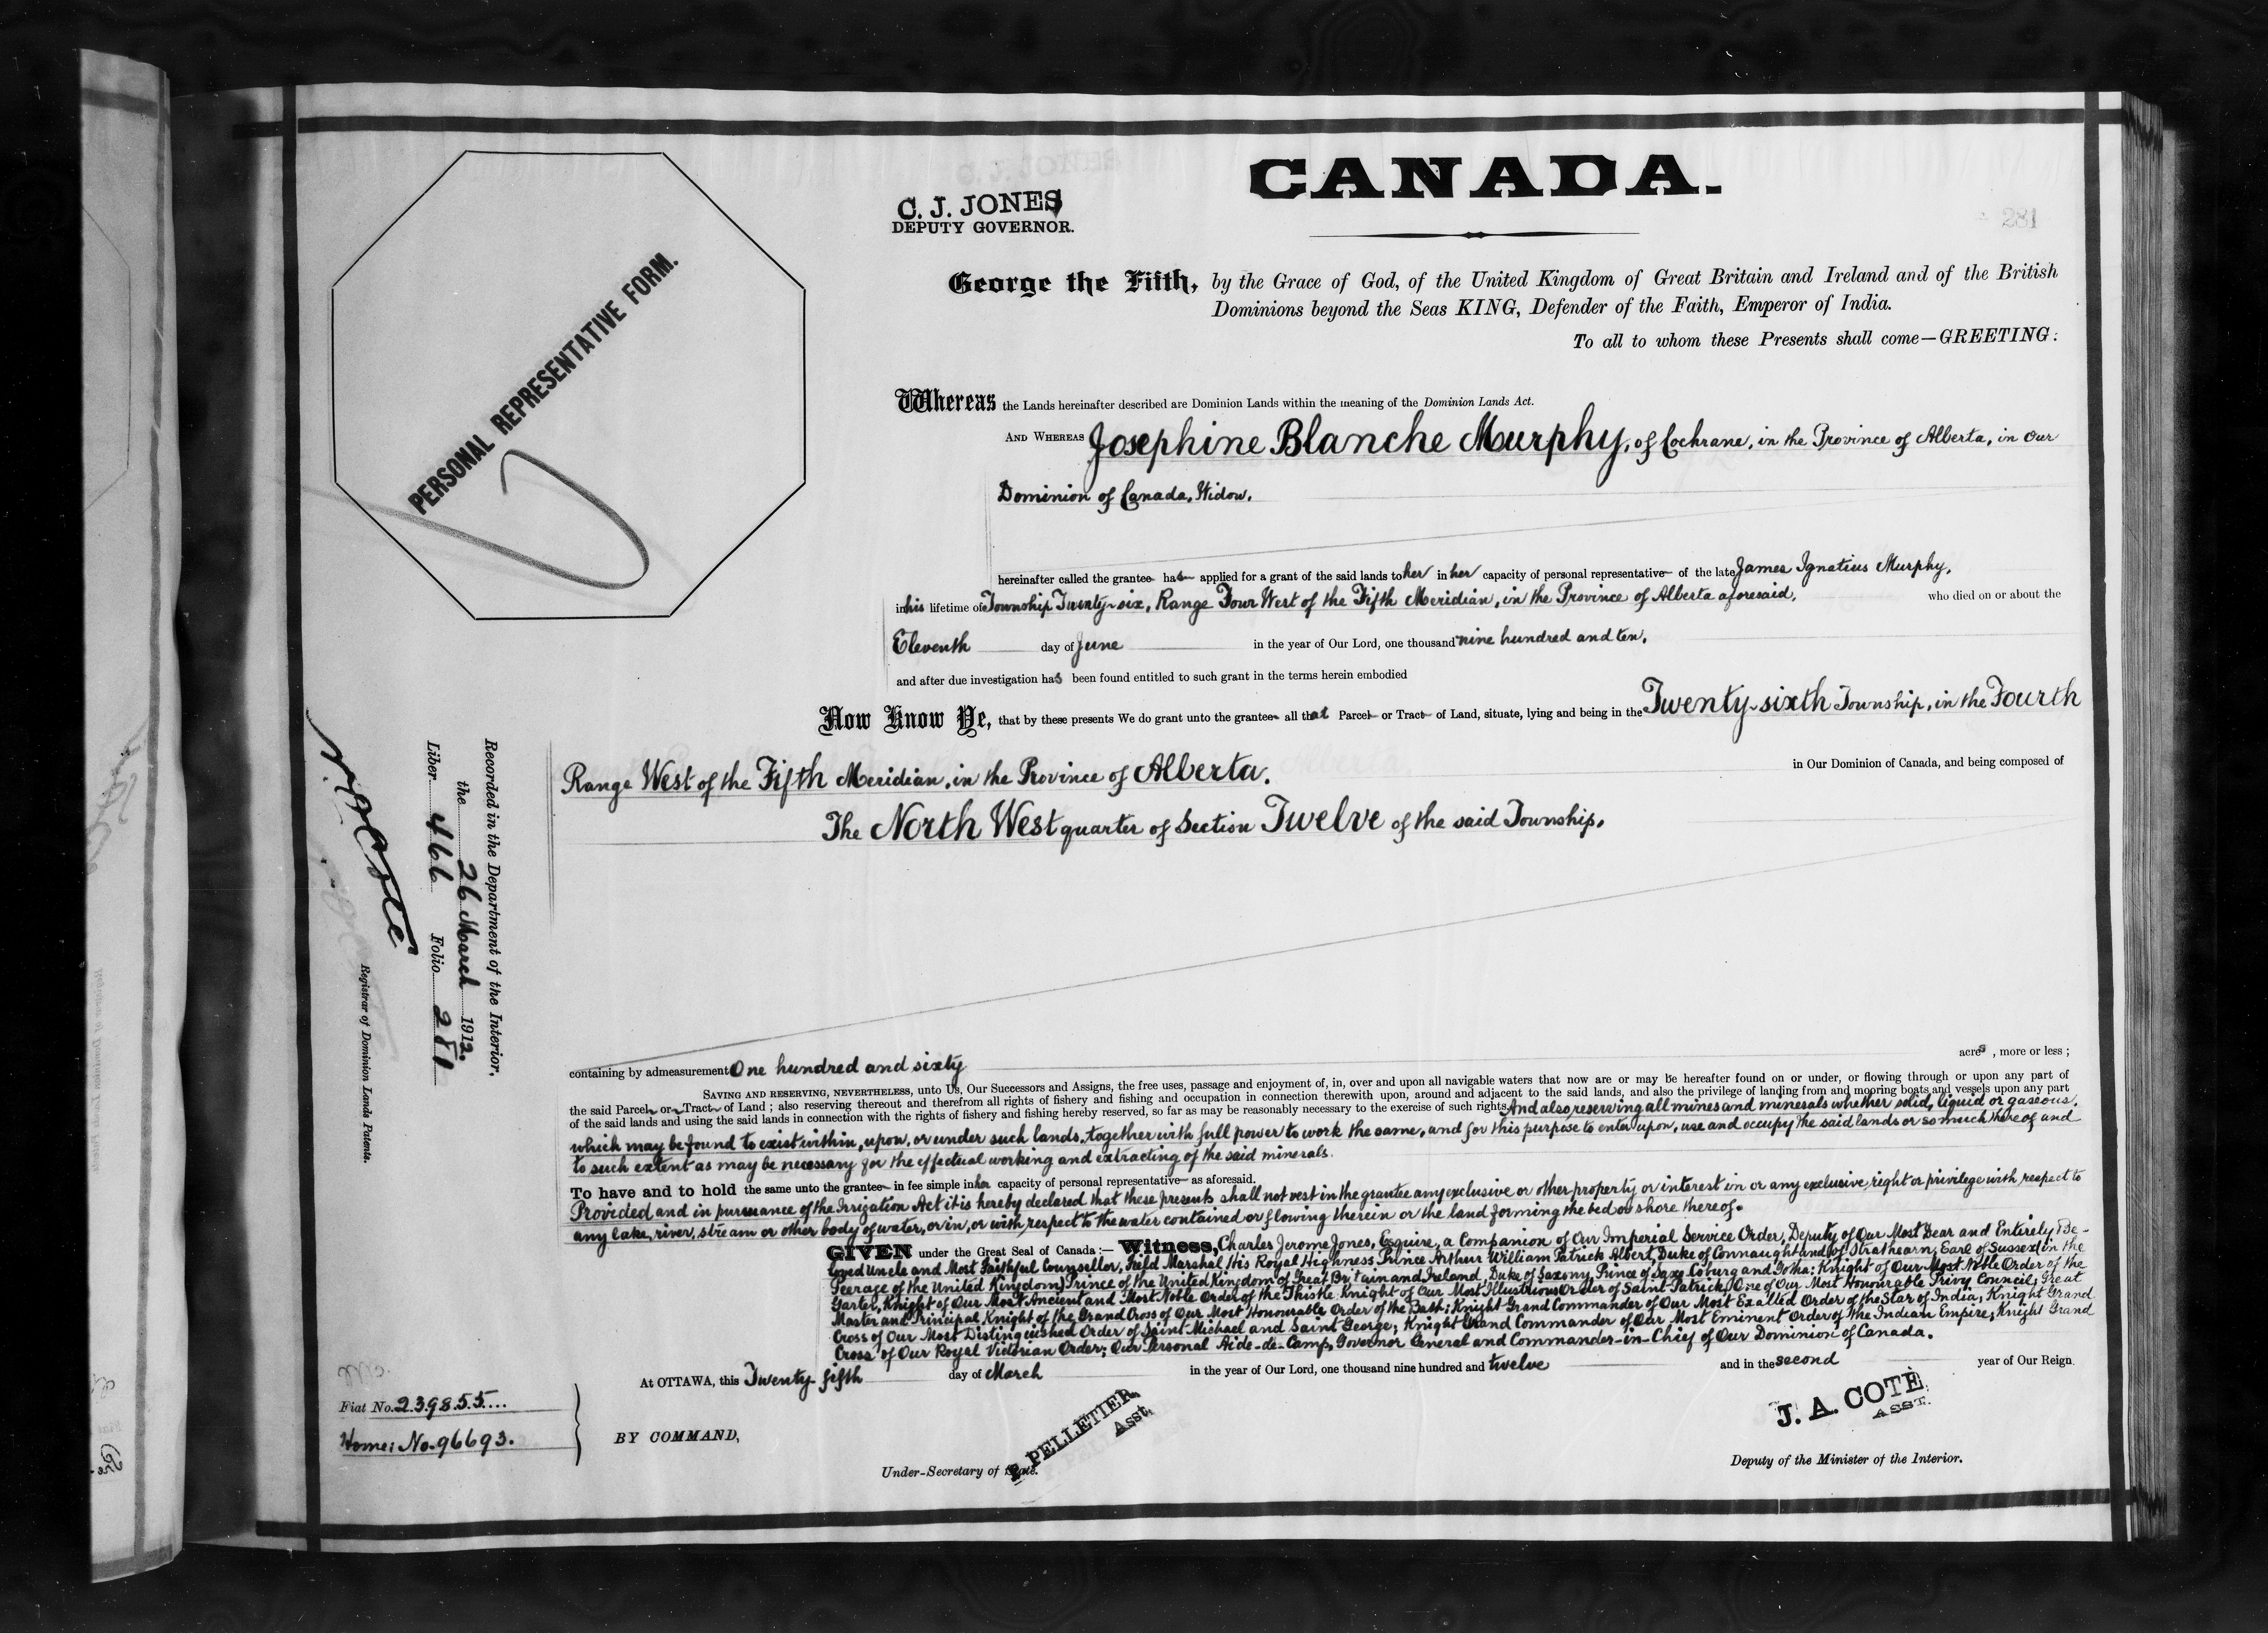 CANADA.
C. J. JONES
DEPUTY GOVERNOR.
281
PERSONAL REPRESENTATIVE FORM.
George the Fifth, by the Grace of God, of the United Kingdom of Great Britain and Ireland and of the British
Dominions beyond the Seas KING, Defender of the Faith, Emperor of India.
To all to whom these Presents shall come—GREETING:
Whereas the Lands hereinafter described are Dominion Lands within the meaning of the Dominion Lands Act.
AND WHEREAS Josephine Blanche Murphy, of Cochrane, in the Province of Alberta, in Our
Dominion of Canada, Widow,
hereinafter called the grantee has applied for a grant of the said lands to her in her capacity of personal representative of the late James Ignatius Murphy,
in his lifetime of Township Twenty-six, Range Four West of the Fifth Meridian, in the Province of Alberta aforesaid, who died on or about the
Eleventh day of June in the year of Our Lord, one thousand nine hundred and ten,
and after due investigation has been found entitled to such grant in the terms herein embodied
Now Know Ye, that by these presents We do grant unto the grantee all that Parcel or Tract of Land, situate, lying and being in the Twenty-sixth Township, in the Fourth
Range West of the Fifth Meridian, in the Province of Alberta, in Our Dominion of Canada, and being composed of
The North West quarter of Section Twelve of the said Township,
containing by admeasurement One hundred and sixty acres, more or less;
SAVING AND RESERVING, NEVERTHELESS, unto Us, Our Successors and Assigns, the free uses, passage and enjoyment of, in, over and upon all navigable waters that now are or may be hereafter found on or under, or flowing through or upon any part of
the said Parcel or Tract of Land; also reserving thereout and therefrom all rights of fishery and fishing and occupation in connection therewith upon, around and adjacent to the said lands, and also the privilege of landing from and mooring boats and vessels upon any part
of the said lands and using the said lands in connection with the rights of fishery and fishing hereby reserved, so far as may be reasonably necessary to the exercise of such rights And also reserving all mines and minerals whether solid, liquid or gaseous,
which may be found to exist within, upon, or under such lands, together with full power to work the same, and for this purpose to enter upon, use and occupy the said lands or so much thereof and
to such extent as may be necessary for the effectual working and extracting of the said minerals.
To have and to hold the same unto the grantee in fee simple in her capacity of personal representative as aforesaid.
Provided and in pursuance of the Irrigation Act it is hereby declared that these presents shall not vest in the grantee any exclusive or other property or interest in or any exclusive right or privilege with respect to
any lake, river, stream or other body of water, or in, or with respect to the water contained or flowing therein or the land forming the bed or shore thereof.
GIVEN under the Great Seal of Canada:— Witness, Charles Jerome Jones, Esquire, a Companion of Our Imperial Service Order, Deputy of Our Most Dear and Entirely Be-
loved Uncle and Most Faithful Counsellor, Field Marshal His Royal Highness Prince Arthur William Patrick Albert, Duke of Connaught and of Strathearn, Earl of Sussex (in the
Peerage of the United Kingdom) Prince of the United Kingdom of Great Britain and Ireland, Duke of Saxony, Prince of Saxe Coburg and Gotha; Knight of Our Most Noble Order of the
Garter, Knight of Our Most Ancient and Most Noble Order of the Thistle Knight of Our Most Illustrious Order of Saint Patrick, One of Our Most Honourable Privy Council; Great
Master and Principal Knight of the Grand Cross of Our Most Honourable Order of the Bath; Knight Grand Commander of Our Most Exalted Order of the Star of India, Knight Grand
Cross of Our Most Distinguished Order of Saint Michael and Saint George; Knight Grand Commander of Our Most Eminent Order of the Indian Empire, Knight Grand
Cross of Our Royal Victorian Order; Our Personal Aide-de-Camp, Governor General and Commander-in-Chief of Our Dominion of Canada.
At OTTAWA, this Twenty fifth day of March in the year of Our Lord, one thousand nine hundred and twelve and in the second year of Our Reign.
BY COMMAND,
P. PELLETIER,
Asst.
Under-Secretary of State.
J. A. COTÉ
ASST.
Deputy of the Minister of the Interior.
Recorded in the Department of the Interior,
the 26 March 1912.
Liber 466 Folio 281
Registrar of Dominion Lands Patents.
Fiat No. 239855
Home: No. 96693.